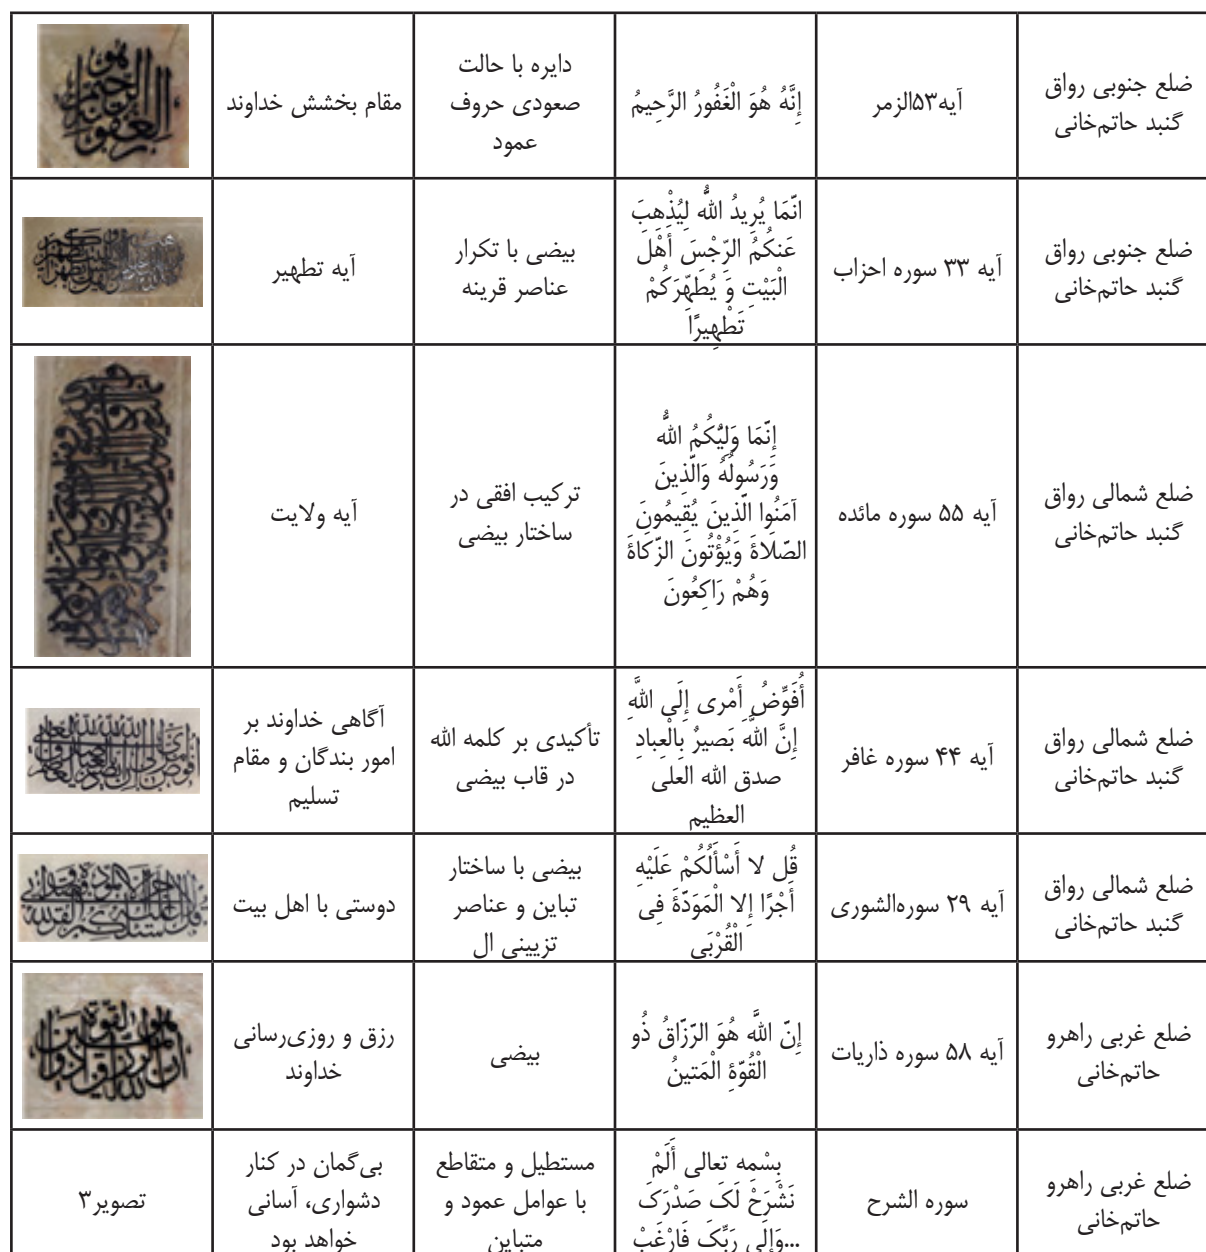 ضلع جنوبی رواق
گنبد حاتم‌خانی
آیه۵۳الزمر
إِنَّهُ هُوَ الْغَفُورُ الرَّحِیمُ
دایره با حالت
صعودی حروف
عمود
مقام بخشش خداوند
ضلع جنوبی رواق
گنبد حاتم‌خانی
آیه ۳۳ سوره احزاب
انّمَا یُرِیدُ اللّٰه لِیُذْهِبَ
عَنکُمُ الرِّجْسَ أَهْلَ
الْبَیْتِ وَ یُطَهِّرَکُمْ
تَطْهِیرًا
بیضی با تکرار
عناصر قرینه
آیه تطهیر
ضلع شمالی رواق
گنبد حاتم‌خانی
آیه ۵۵ سوره مائده
إنّمَا وَلِیُّکُمُ اللّٰه
وَرَسُولُهُ وَالّذِینَ
آمَنُوا الّذِینَ یُقِیمُونَ
الصّلاةَ وَیُؤْتُونَ الزّکاةَ
وَهُمْ رَاکِعُونَ
ترکیب افقی در
ساختار بیضی
آیه ولایت
ضلع شمالی رواق
گنبد حاتم‌خانی
آیه ۴۴ سوره غافر
أُفَوِّضُ أَمْری إِلَی اللَّهِ
إِنَّ اللَّهَ بَصیرٌ بِالْعِبادِ
صدق الله العلی
العظیم
تأکیدی بر کلمه الله
در قاب بیضی
آگاهی خداوند بر
امور بندگان و مقام
تسلیم
ضلع شمالی رواق
گنبد حاتم‌خانی
آیه ۲۹ سوره‌الشوری
قُل لا أَسْأَلُکُمْ عَلَیْهِ
أَجْرًا إِلا الْمَوَدّةَ فِی
الْقُرْبَی
بیضی با ساختار
تباین و عناصر
تزیینی ال
دوستی با اهل بیت
ضلع غربی راهرو
حاتم‌خانی
آیه ۵۸ سوره ذاریات
إنّ اللَّه هُوَ الرّزّاقُ ذُو
الْقُوّةِ الْمَتینُ
بیضی
رزق و روزی‌رسانی
خداوند
ضلع غربی راهرو
حاتم‌خانی
سوره الشرح
بِسْمِه تعالی أَلَمْ
نَشْرَحْ لَکَ صَدْرَکَ
...وَإِلَی رَبِّکَ فَارْغَبْ
مستطیل و متقاطع
با عوامل عمود و
متباین
بی‌گمان در کنار
دشواری، آسانی
خواهد بود
تصویر۳